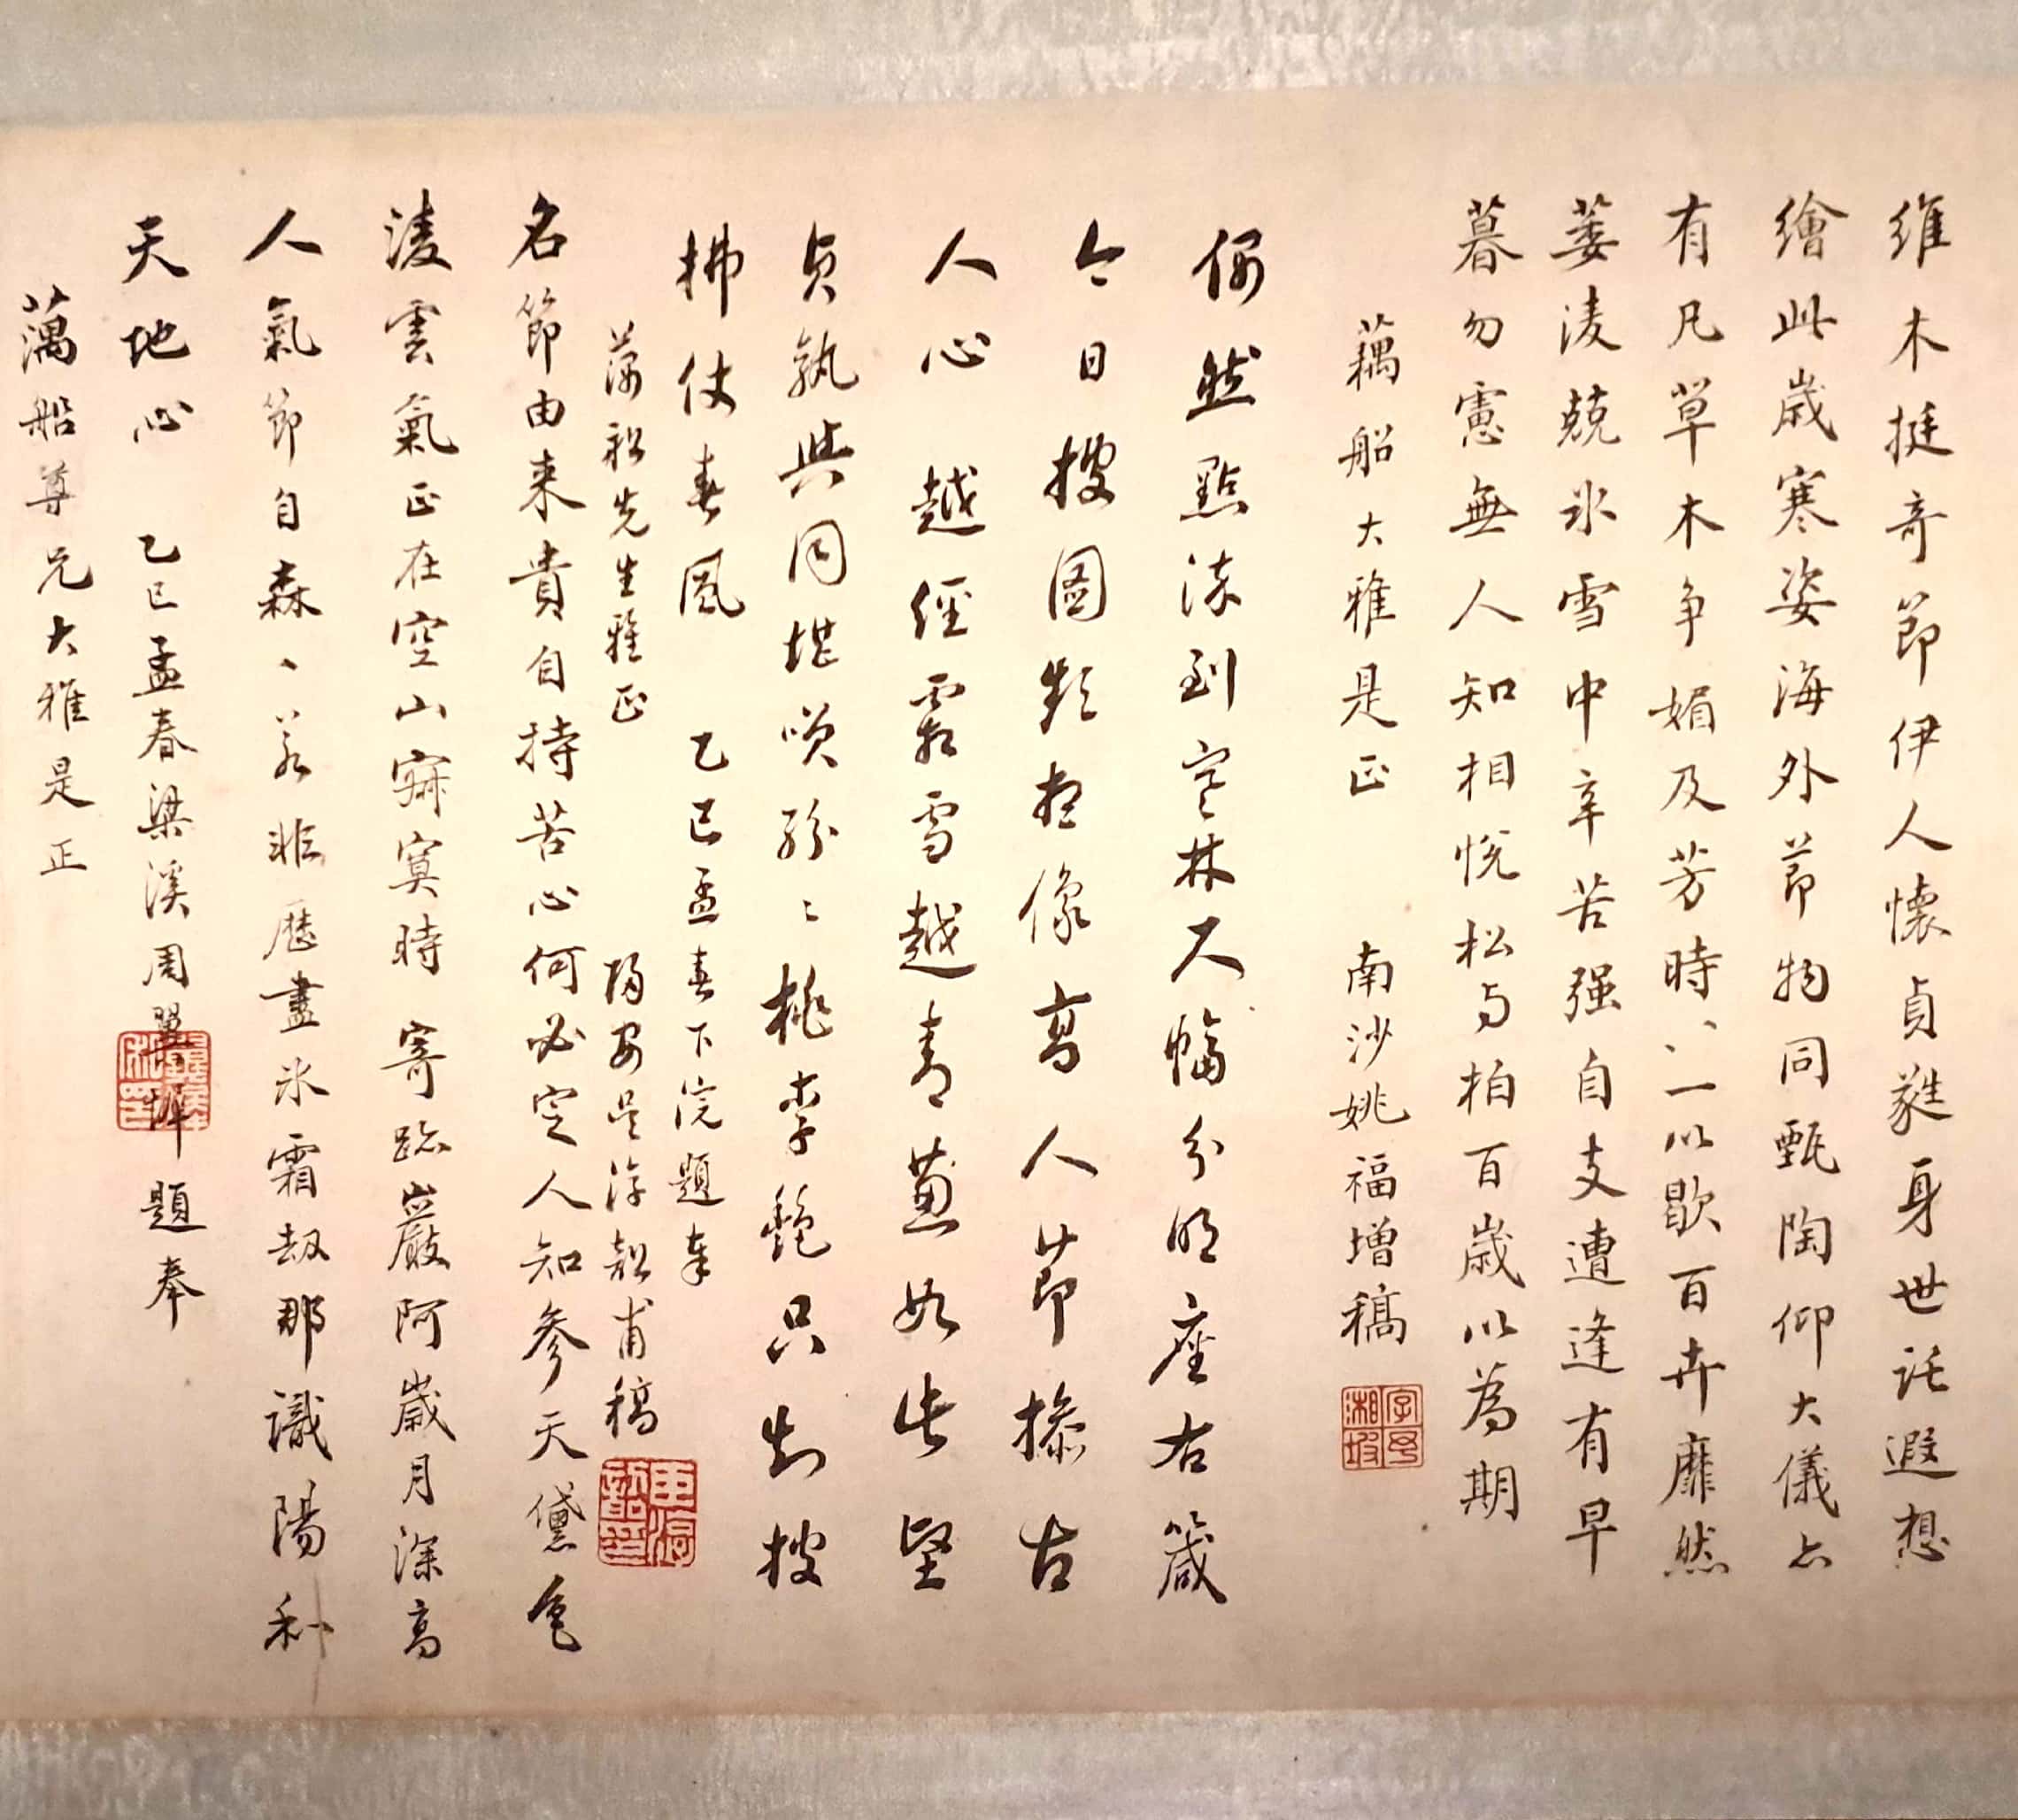 維木挺奇節伊人懷貞蕤身世託遐想
繪此歲寒姿海外節物同甄陶仰大儀亦
有凡草木爭媚及芳時、、一以歇百卉靡然
萎淩兢氷雪中辛苦强自支遭逢有早
暮勿慮無人知相悅松與柏百歲以為期
藕船大雅是正 南沙姚福增稿
偶然點染到寒林尺幅分明座右箴
今日披圖頻想像高人節操古
人心 越經霜雪越青蔥如此堅
貞孰與同堪嘆紛〻桃李艷只知披
拂仗春風 乙巳孟春下浣題奉
藕船先生雅正 陽安吳淳韶甫稿
名節由来貴自持苦心何必定人知參天黛色
淩雲氣正在空山寂寞時 寄跡巖阿歲月深高
人氣節自森、若非歷盡氷霜劫那識陽和
天地心 乙巳孟春梁溪周翼墀題奉
藕船尊兄大雅是正